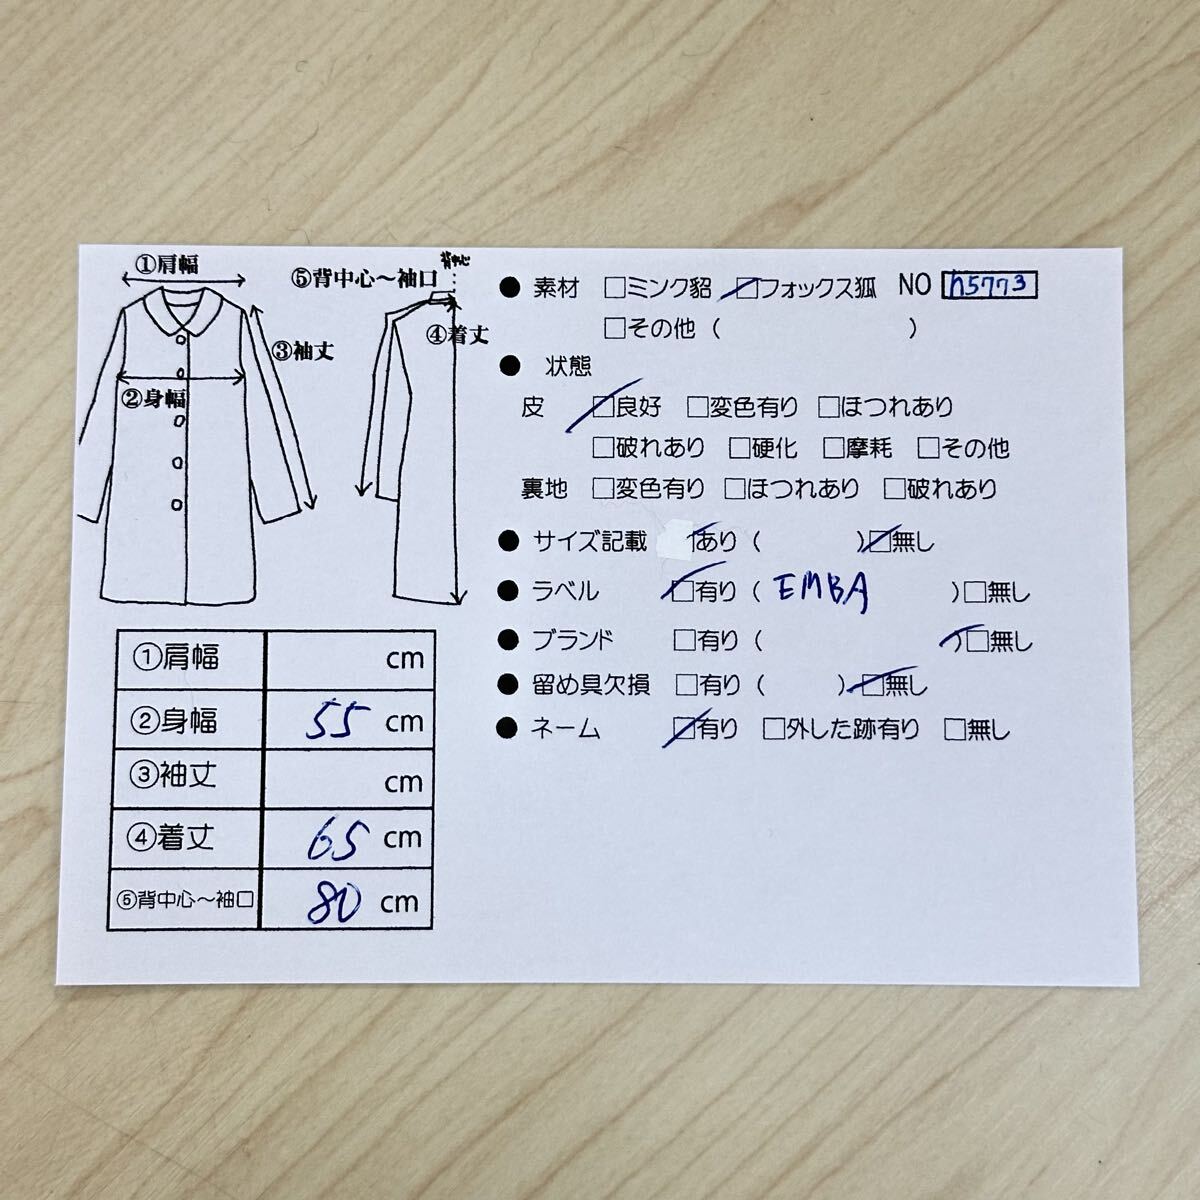 ①肩幅
⑤背中心～袖口
背中心
④着丈
③袖丈
②身幅
①肩幅 cm
②身幅 55 cm
③袖丈 cm
④着丈 65 cm
⑤背中心～袖口 80 cm
● 素材 □ミンク貂 □フォックス狐 NO h5773
□その他 ( )
● 状態
皮 □良好 □変色有り □ほつれあり
□破れあり □硬化 □摩耗 □その他
裏地 □変色有り □ほつれあり □破れあり
● サイズ記載 あり ( ) □無し
● ラベル □有り ( EMBA ) □無し
● ブランド □有り ( ) □無し
● 留め具欠損 □有り ( ) □無し
● ネーム □有り □外した跡有り □無し